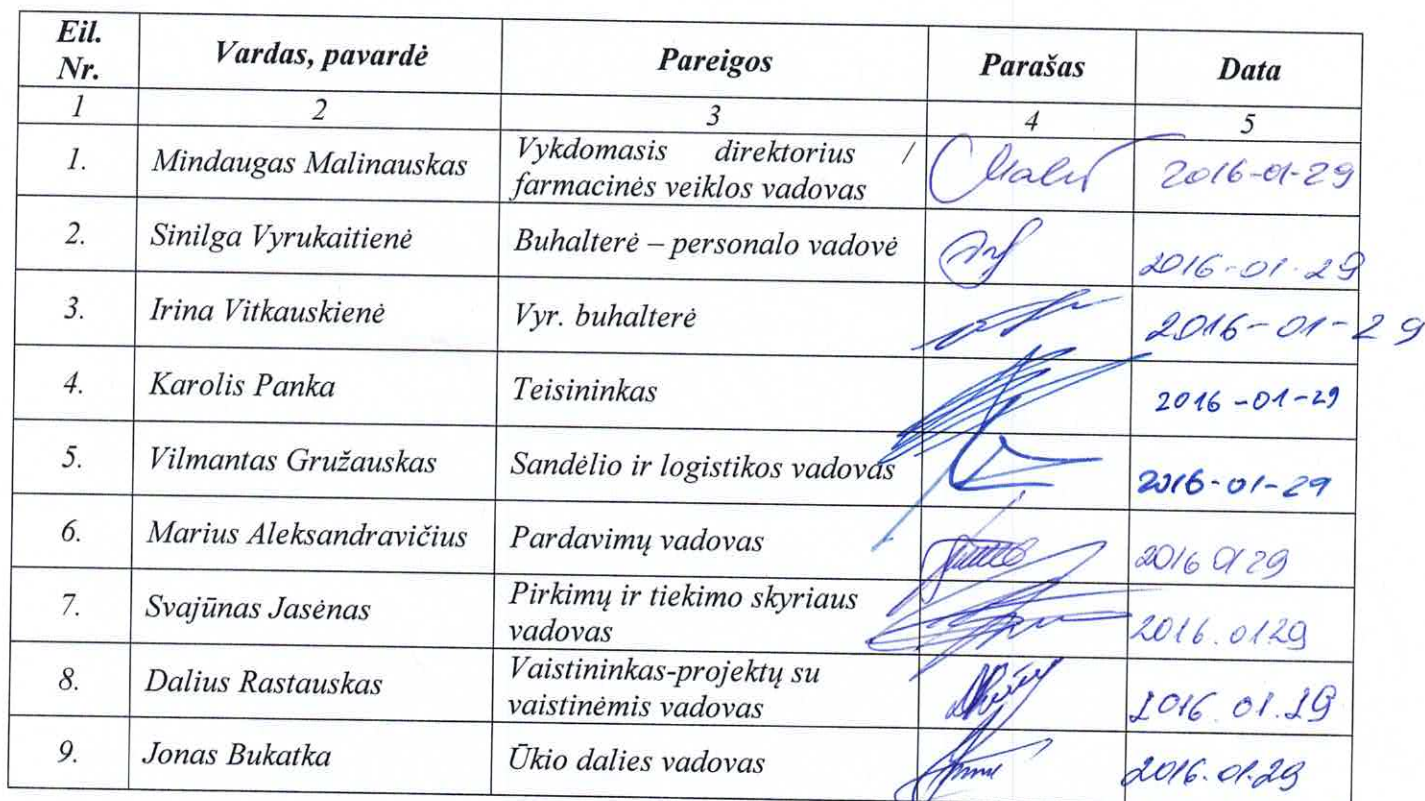 Eil. Nr. Vardas, pavardė Pareigos Parašas Data
1 2 3 4 5
1. Mindaugas Malinauskas Vykdomasis direktorius / 2016-01-29
farmacinės veiklos vadovas
2. Sinilga Vyrukaitienė Buhalterė – personalo vadovė 2016-01-29
3. Irina Vitkauskienė Vyr. buhalterė 2016-01-29
4. Karolis Panka Teisininkas 2016-01-29
5. Vilmantas Gružauskas Sandėlio ir logistikos vadovas 2016-01-29
6. Marius Aleksandravičius Pardavimų vadovas 2016 01 29
7. Svajūnas Jasėnas Pirkimų ir tiekimo skyriaus 2016.01.29
vadovas
8. Dalius Rastauskas Vaistininkas-projektų su 2016.01.29
vaistinėmis vadovas
9. Jonas Bukatka Ūkio dalies vadovas 2016.01.29